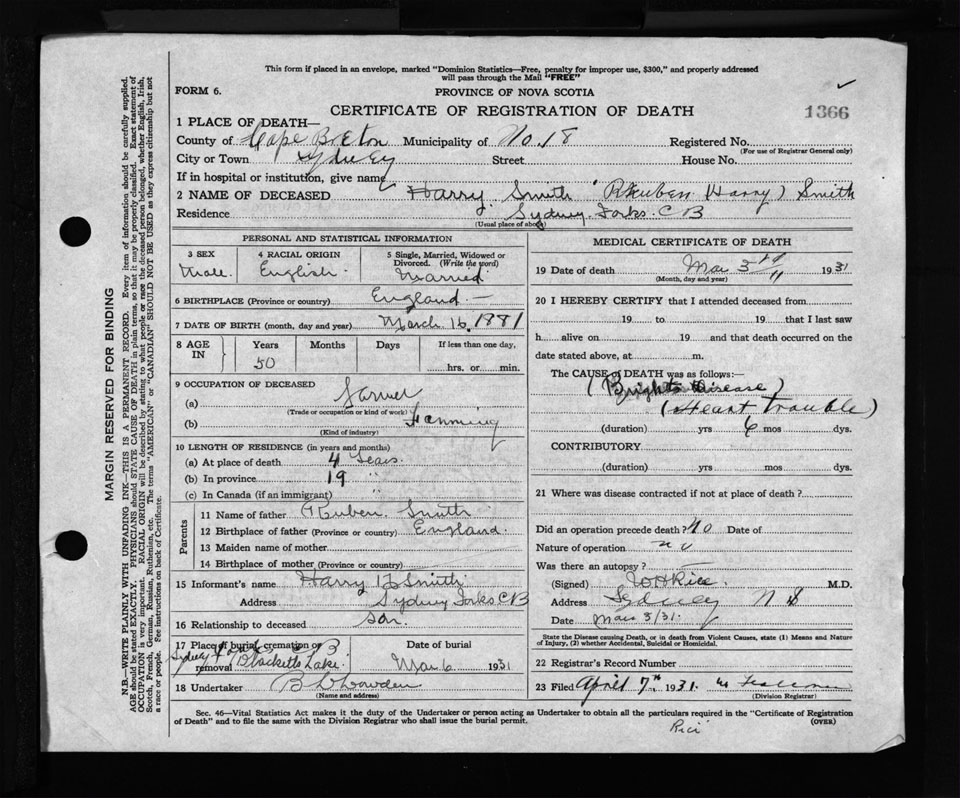 This form if placed in an envelope, marked "Dominion Statistics—Free, penalty for improper use, $300," and properly addressed
will pass through the Mail "FREE"
FORM 6.
PROVINCE OF NOVA SCOTIA
CERTIFICATE OF REGISTRATION OF DEATH
1366
1 PLACE OF DEATH—
County of Cape Breton Municipality of No. 18 Registered No.
(For use of Registrar General only)
City or Town Sydney Street House No.
If in hospital or institution, give name
2 NAME OF DECEASED Harry Smith (Rheuben (Harry) Smith
Residence Sydney Forks C B
(Usual place of abode)
PERSONAL AND STATISTICAL INFORMATION
3 SEX
Male
4 RACIAL ORIGIN
English
5 Single, Married, Widowed or
Divorced. (Write the word)
Married
6 BIRTHPLACE (Province or country) England
7 DATE OF BIRTH (month, day and year) March 16, 1881
8 AGE IN
Years Months Days If less than one day,
50 hrs. or min.
9 OCCUPATION OF DECEASED
(a) Farmer
(Trade or occupation or kind of work)
(b) Farming
(Kind of industry)
10 LENGTH OF RESIDENCE (in years and months)
(a) At place of death 4 Years
(b) In province 19 "
(c) In Canada (if an immigrant) "
Parents
11 Name of father Smith
12 Birthplace of father (Province or country) England
13 Maiden name of mother
14 Birthplace of mother (Province or country)
15 Informant's name Harry Smith
Address Sydney Forks C B
16 Relationship to deceased Son
17 Place of burial, cremation or
removal Blacketts Lake
Date of burial
Mar 6 1931
18 Undertaker
MEDICAL CERTIFICATE OF DEATH
19 Date of death Mar 3rd 1931
(Month, day and year)
20 I HEREBY CERTIFY that I attended deceased from
19 to 19 that I last saw
h alive on 19 and that death occurred on the
date stated above, at m.
The CAUSE OF DEATH was as follows:—
(Brights Disease)
(Heart Trouble)
(duration) yrs 6 mos dys.
CONTRIBUTORY
(duration) yrs mos dys.
21 Where was disease contracted if not at place of death?
Did an operation precede death? No Date of
Nature of operation
Was there an autopsy?
(Signed) Rice M.D.
Address Sydney N S
Date Mar 3/31.
State the Disease causing Death, or in death from Violent Causes, state (1) Means and Nature
of Injury, (2) whether Accidental, Suicidal or Homicidal.
22 Registrar's Record Number
23 Filed April 7th, 1931.
(Division Registrar)
Sec. 46—Vital Statistics Act makes it the duty of the Undertaker or person acting as Undertaker to obtain all the particulars required in the "Certificate of Registration
of Death" and to file the same with the Division Registrar who shall issue the burial permit.
(OVER)
MARGIN RESERVED FOR BINDING
N.B.—WRITE PLAINLY WITH UNFADING INK—THIS IS A PERMANENT RECORD. Every item of information should be carefully supplied.
AGE should be stated EXACTLY. PHYSICIANS should STATE CAUSE OF DEATH in plain terms, so that it may be properly classified. Exact statement of
OCCUPATION is very important. RACIAL ORIGIN will be described by stating to what people or race the deceased person belonged, whether English, Irish,
Scotch, French, German, Russian, Ruthenian, etc. The terms "AMERICAN" or "CANADIAN" SHOULD NOT BE USED as they express citizenship but not
a race or people. See instructions on back of Certificate.